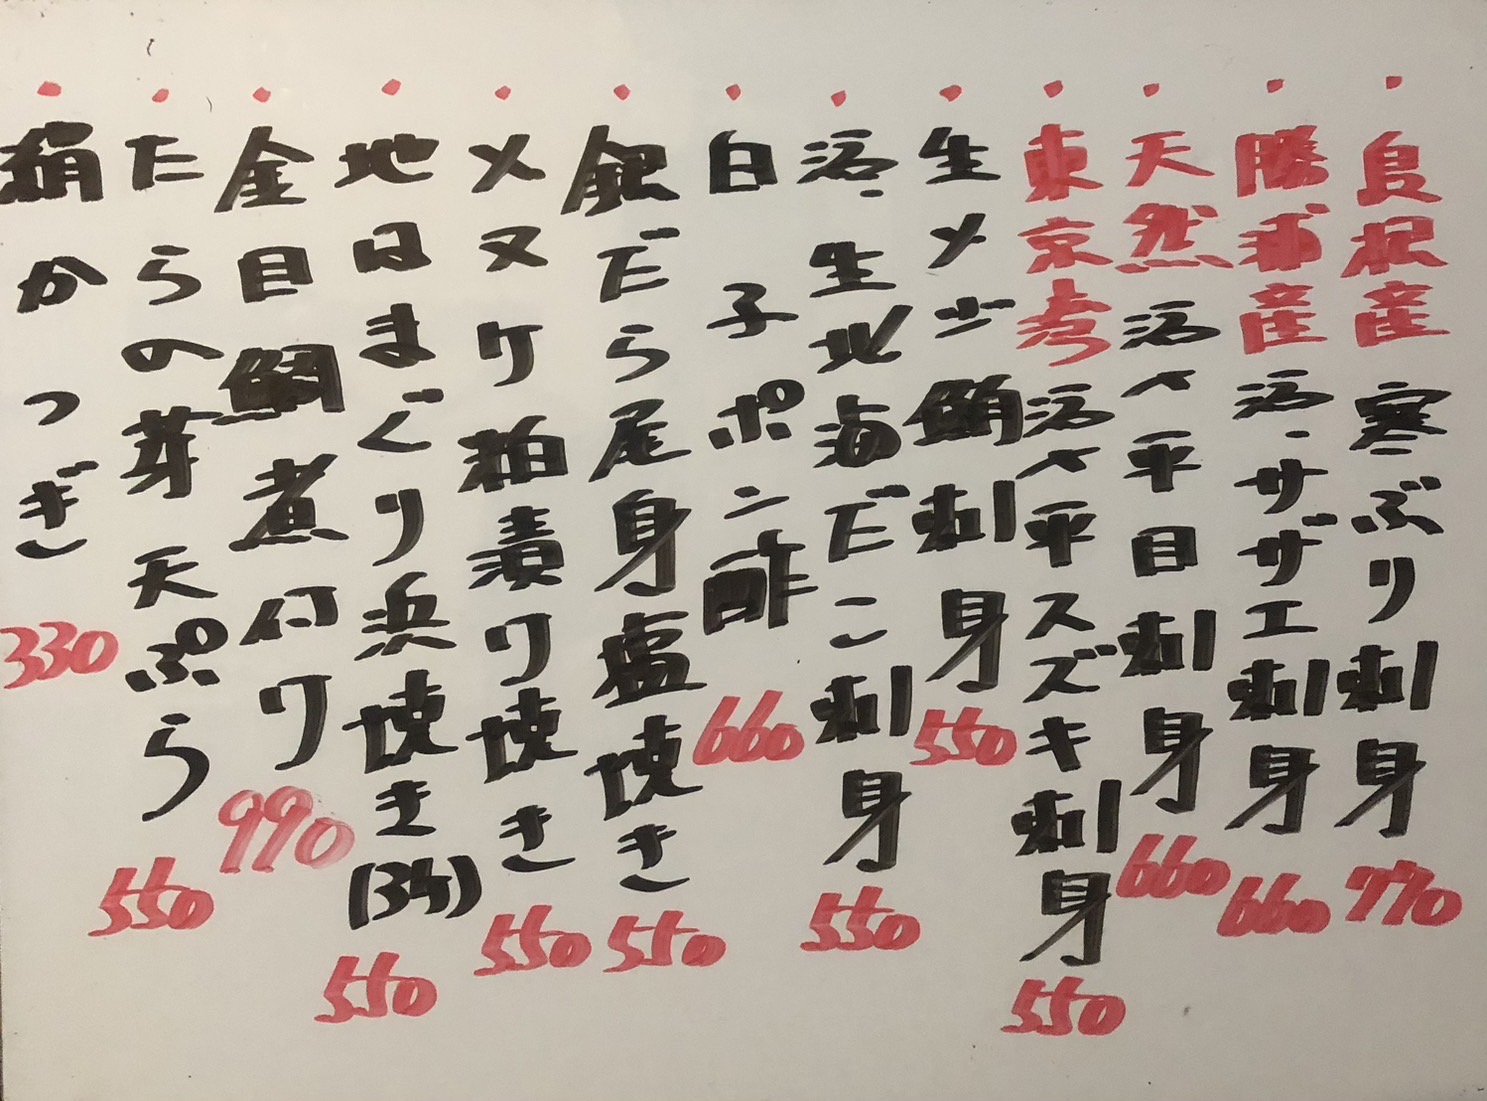 ・島根産寒ぶり刺身 770
・勝浦産活サザエ刺身 660
・天然活〆平目刺身 660
・東京湾活〆平スズキ刺身 550
・生メジ鮪刺身 550
・活生北海だこ刺身 550
・白子ポン酢 660
・銀だら尾身塩焼き 550
・メヌケ粕漬け焼き 550
・地はまぐり浜焼き(3ケ) 550
・金目鯛煮付け 990
・たらの芽天ぷら 550
・絹かつぎ 330